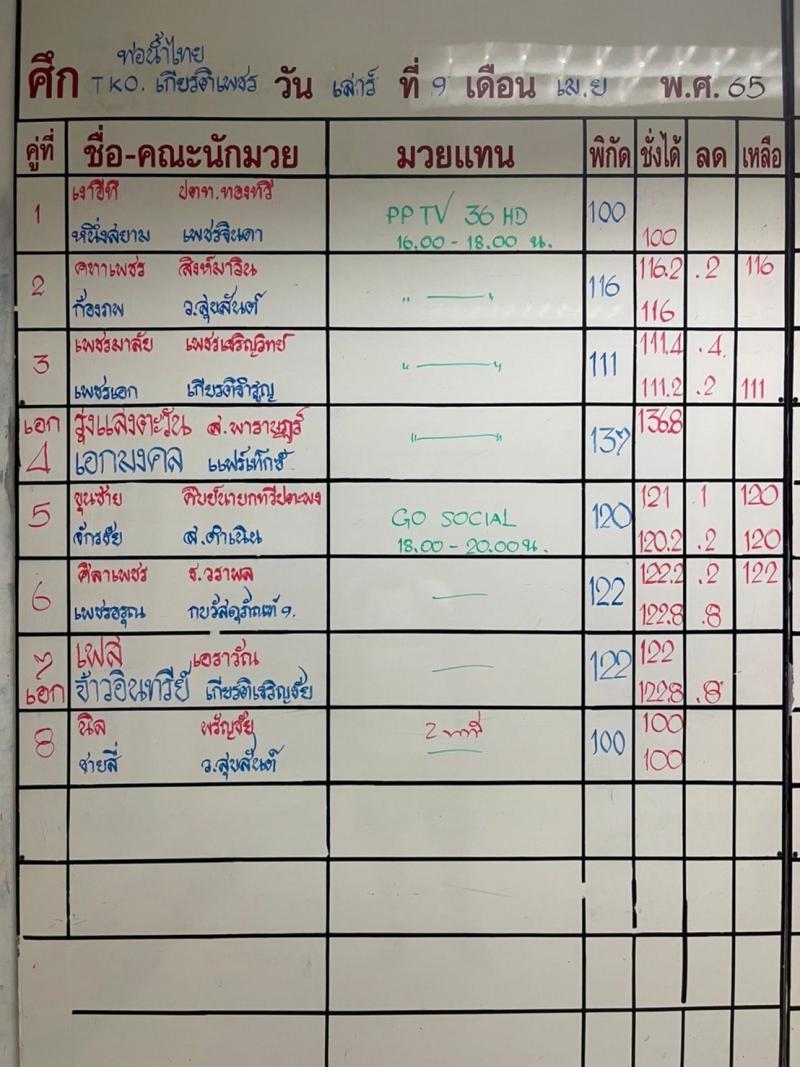 ศึก ท่อน้ำไทย TKO. เกียรติเพชร วัน เสาร์ ที่ 9 เดือน เม.ย พ.ศ. 65
คู่ที่ ชื่อ-คณะนักมวย มวยแทน พิกัด ชั่งได้ ลด เหลือ
1 เงาอีที ปตท.ทองทวี PPTV 36 HD 100
หนึ่งสยาม เพชรจินดา 16.00 - 18.00 น. 100
2 คทาเพชร สิงห์มาวิน 116 116.2 .2 116
ก้องภพ ว.สุขสันต์ " — " 116
3 เพชรมาลัย เพชรเจริญวิทย์ 111 111.4 .4
เพชรเอก เกียรติจำรูญ " — " 111.2 .2 111
เอก รุ่งแสงตะวัน ส.พาราษฎร์ 137 136.8
4 เอกมงคล แฟร์เท็กซ์ " — "
5 ขุนชาย GO SOCIAL 120 121 1 120
จักรชัย ส.ดำเนิน 18.00 - 20.00 น. 120.2 .2 120
6 ศิลาเพชร ช.วราพล — 122 122.2 .2 122
เพชรอรุณ 122.8 .8
7 เฟส เอราวัณ — 122 122
เอก จ้าวอินทรีย์ เกียรติเจริญชัย 122.8 .8
8 นิล พรัญชัย 100 100
ชายสี่ ว.สุขสันต์ — 100